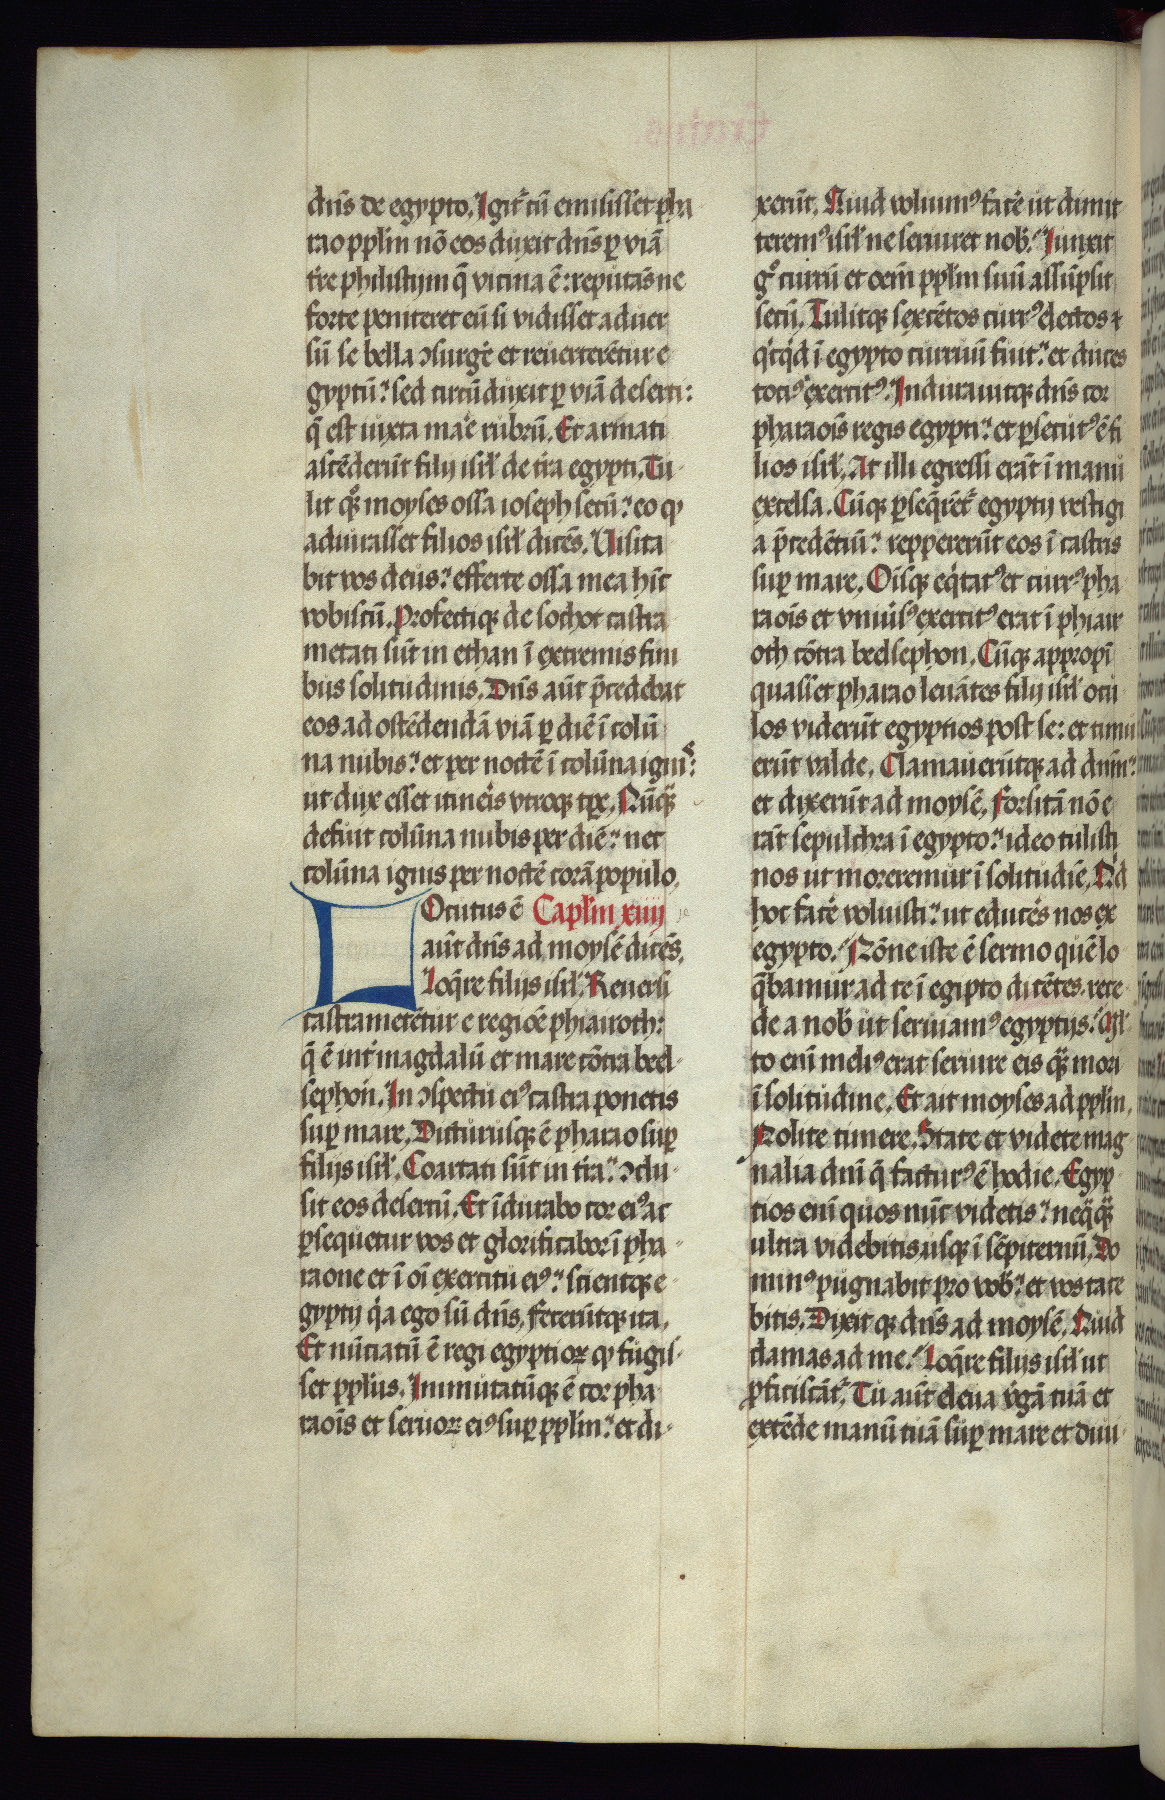 dn̄s de egypto. Igit᷑ cū emisisset pha
rao pp̄lm nō eos duxit dn̄s ꝑ viā
tr̄e philistijm q̄ vicina ē: reputās ne
forte peniteret eū si vidisset aduer
sū se bella ꝯsurge᷑ et reuerterētur e
gyptū: sed circūduxit ꝑ viā deserti:
q̄ est iuxta mar̄e rubrū. Et armati
ascēderūt filij isrl̄ de tr̄a egypti. Tu
lit qͦꝫ moyses ossa ioseph secū: eo ꝙ
adiurasset filios isrl̄ dicēs. Uisita
bit vos deus: efferte ossa mea hīc
vobiscū. Profectiqꝫ de sochot castra
metati sūt in ethan ī extremis fini
bus solitudinis. Dn̄s aūt p̄cedebat
eos ad ostēdendā viā ꝑ diē ī colū
na nubis: et per noctē ī colūna ignis:
ut dux esset itineris vtroqꝫ tp̄e. Nūqꝫ
defuit colūna nubis per diē: nec
colūna ignis per noctē corā populo.
LOcutus ē Capl̄m xiiij
aūt dn̄s ad moysē dicēs.
Loq̄re filijs isrl̄. Reuersi
castrametētur e regiōe phiairoth:
q̄ ē int᷑ magdalū et mare cōtra beel
sephon. In ꝯspectu eiꝰ castra ponetis
suꝑ mare. Dicturusqꝫ ē pharao suꝑ
filijs isrl̄. Coartati sūt in tr̄a: ꝯclu
sit eos desertū. Et īdurabo cor eiꝰ ac
ꝑsequetur vos et glorificabor ī pha
raone et ī oī exercitu eiꝰ: scientqꝫ e
gyptij qͥa ego sū dn̄s. fecerūtqꝫ ita.
Et nūciatū ē regi egyptioꝝ ꝙ fugis
set pp̄lus. Immutatūqꝫ ē cor pha
raois et seruoꝝ eiꝰ suꝑ pp̄lm: et di
xerūt. Quid voluimꝰ fac̄e ut dimit
teremꝰ isrl̄ ne seruiret nob̄. Iunxit
gͦ currū et oem̄ pp̄lm suū assūpsit
secū. Tulitqꝫ sexcētos currꝰ electos ⁊
qͥcqͥd ī egypto curruū fuit: et duces
tociꝰ exercitꝰ. Indurauitqꝫ dn̄s cor
pharaois regis egypti: et ꝑsecutꝰ ē fi
lios isrl̄. At illi egressi erāt ī manu
excelsa. Cūqꝫ ꝑseq̄rēt᷑ egyptij vestigi
a p̄cedētiū: reppererūt eos ī castris
suꝑ mare. Oīsqꝫ eqͥtatꝰ et currꝰ pha
raois et vniūsꝰ exercitꝰ erat ī phiair
oth cōtra beelsephon. Cūqꝫ appropī
quasset pharao leuātes filij isrl̄ ocu
los viderūt egyptios post se: et timu
erūt valde. Clamauerūtqꝫ ad dn̄m:
et dixerūt ad moysē. forsitā nō e
rāt sepulchra ī egypto: ideo tulisti
nos ut moreremur ī solitudīe. Qͥd
hoc fac̄e voluisti: ut educe᷑s nos ex
egypto. Nōne iste ē sermo quē lo
q̄bamur ad te ī egipto dicētes. rece
de a nob̄ ut seruiamꝰ egyptijs. Ml̄
to eni meliꝰ erat seruire eis qꝫ mori
ī solitudine. Et ait moyses ad pp̄lm.
Nolite timere. State et videte mag
nalia dn̄i q̄ facturꝰ ē hodie. Egyp
tios eni quos nūc videtis: neq̄qꝫ
ultra videbitis usqꝫ ī sēpiternū. Do
minꝰ pugnabit pro vob̄: et vos tace
bitis. Dixit qꝫ dn̄s ad moysē. Quid
clamas ad me. Loq̄re filijs isrl̄ ut
ꝓficiscāt᷑. Tu aūt eleua v̄gā tuā et
extēde manū tuā suꝑ mare et diui